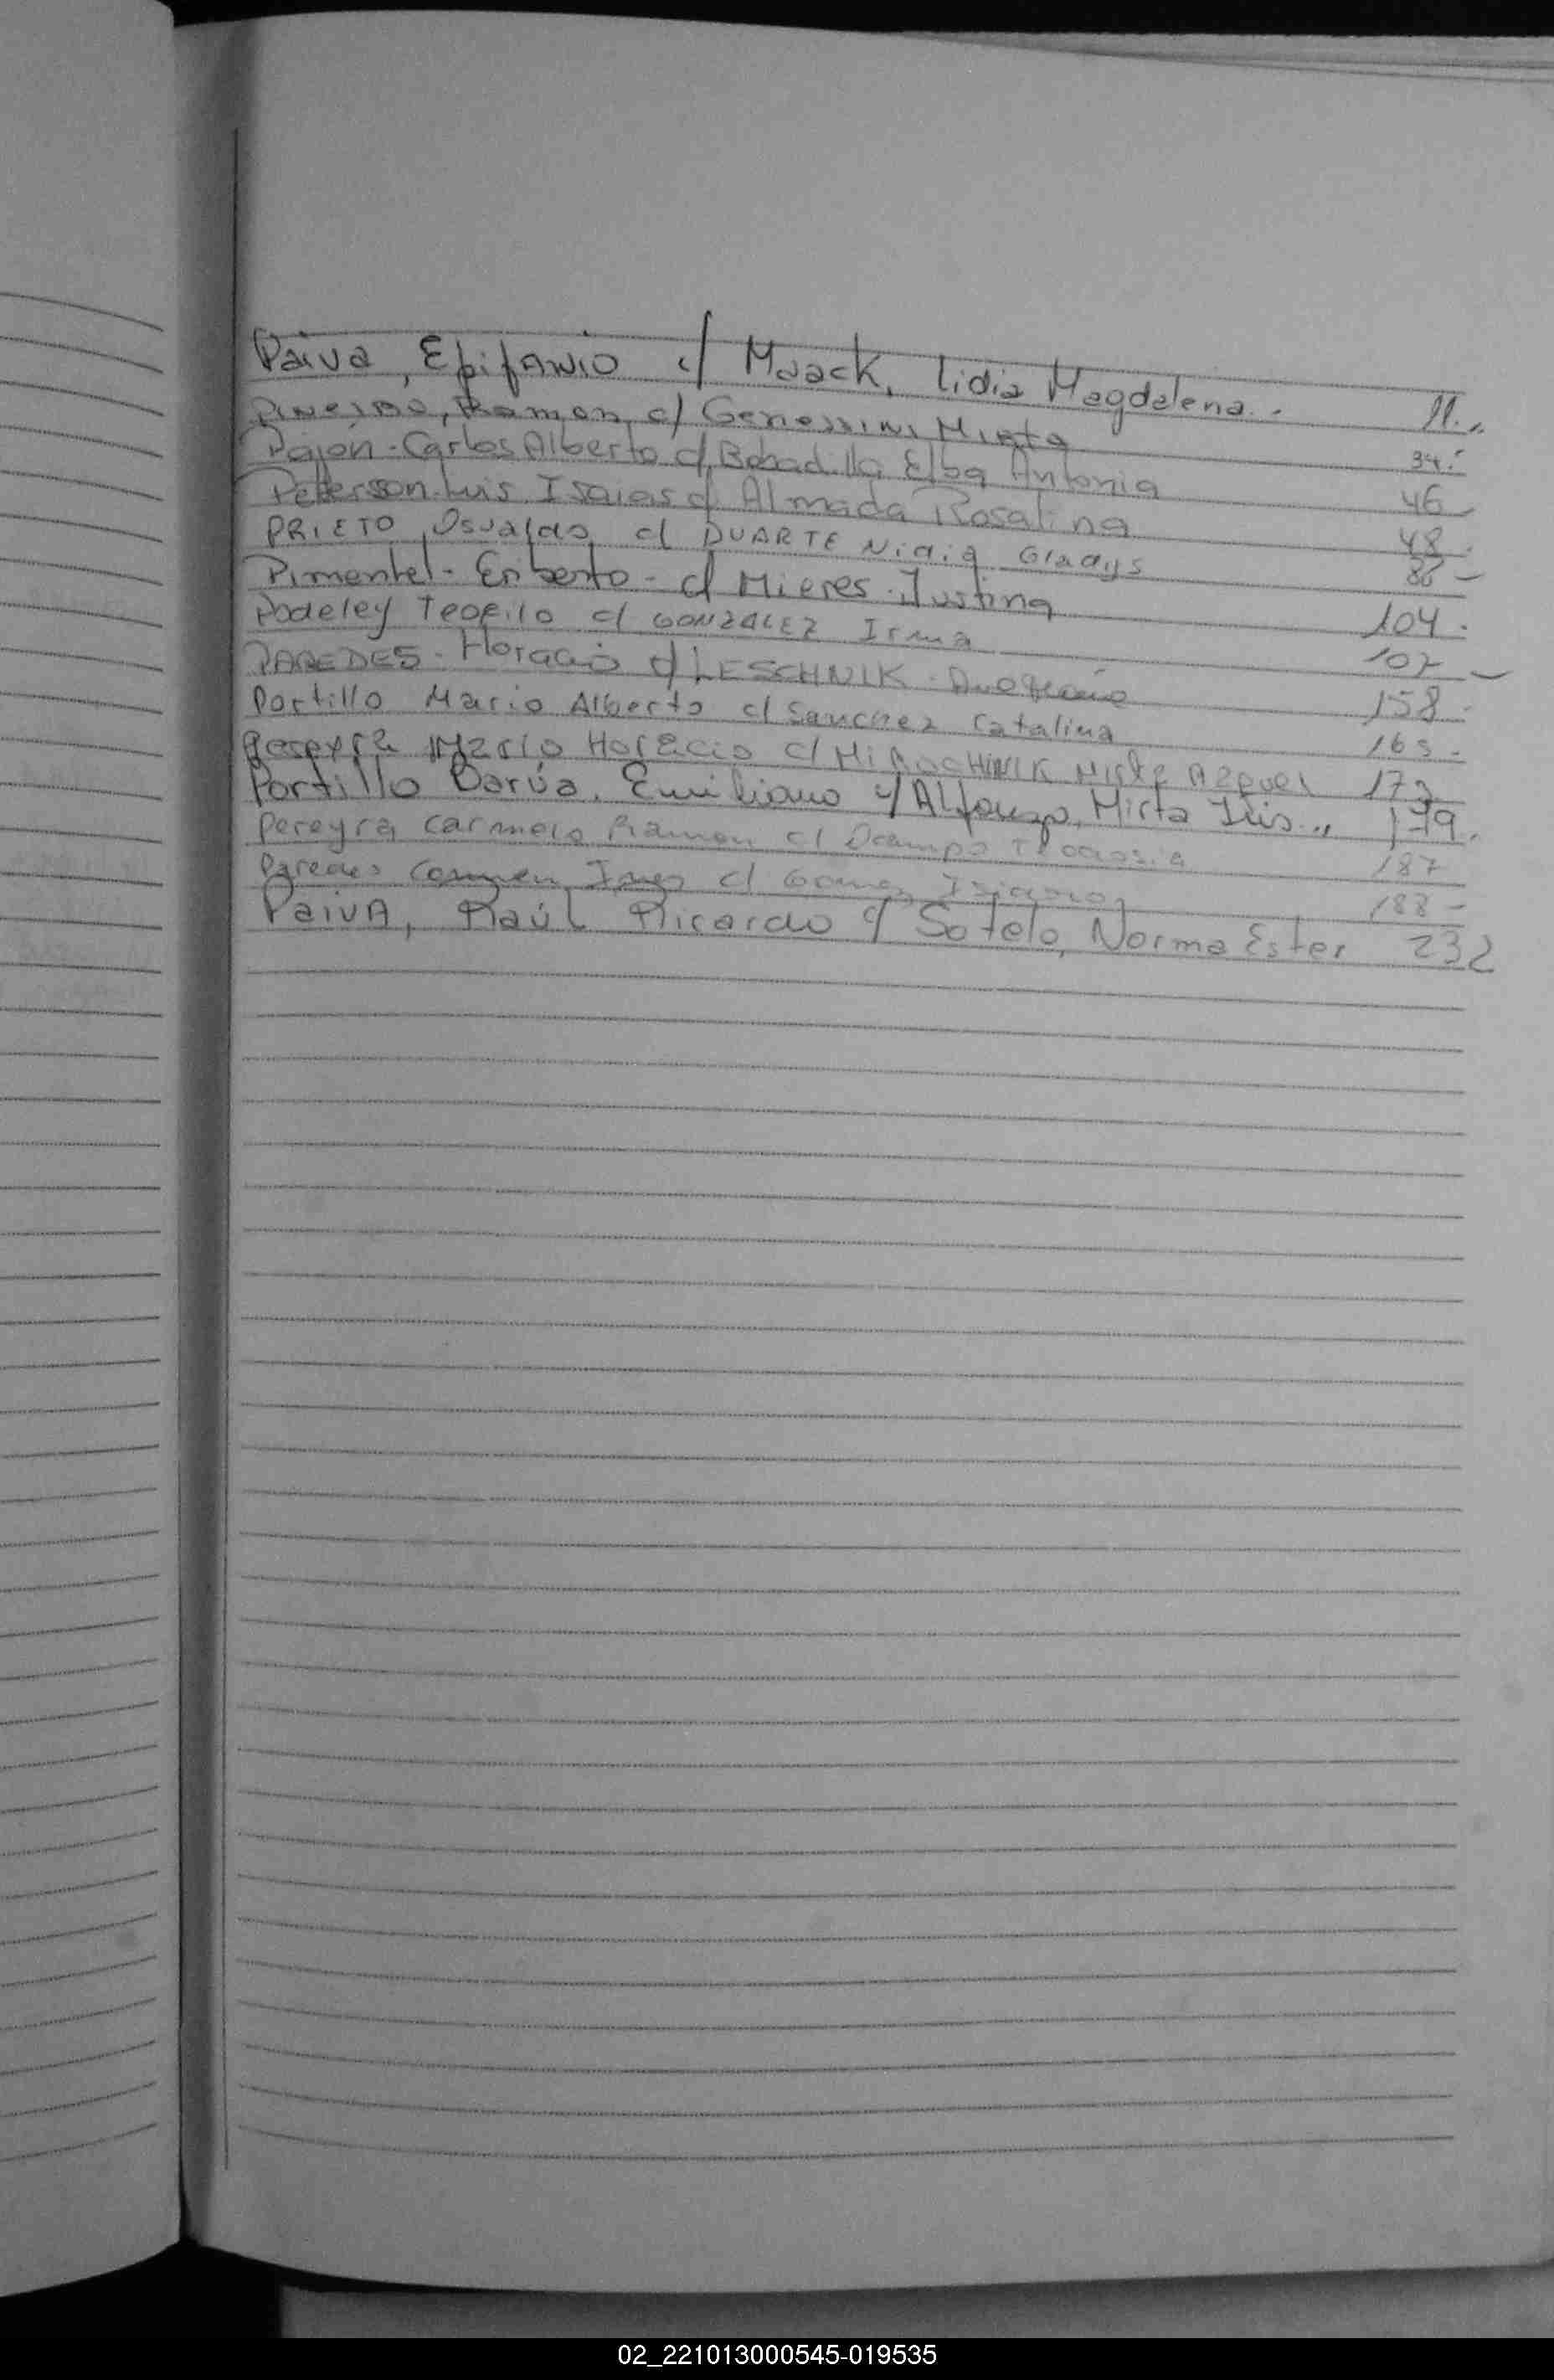 Paiva, Epifanio c/ Maack, Lidia Magdalena.- 11.,
Ramon c/ Mirta 34.-
Pajon - Carlos Alberto c/ Bobadilla Elba Antonia 46
Peterson Luis Isaias c/ Almada Rosalina 48.
PRIETO, Osvaldo c/ DUARTE Nidia Gladys 86 -
Pimentel - Eriberto - c/ Mieres - Justina 104.
Podeley Teofilo c/ GONZALEZ Irma 107 -
PAREDES - Horacio c/ LESCHNIK - 158.
Portillo Mario Alberto c/ Sanchez Catalina 165-
Pereyra Mario Horacio c/ Mirta 173
Portillo Barúa, Emiliano c/ Alfonzo, Mirta Iris.,, 179.
Pereyra Carmelo Ramon c/ Ocampo Teodosia 187
Paredes Carmen Ines c/ Gomez Isidoro 188 -
Paiva, Raúl Ricardo c/ Sotelo, Norma Ester 232
02_221013000545-019535